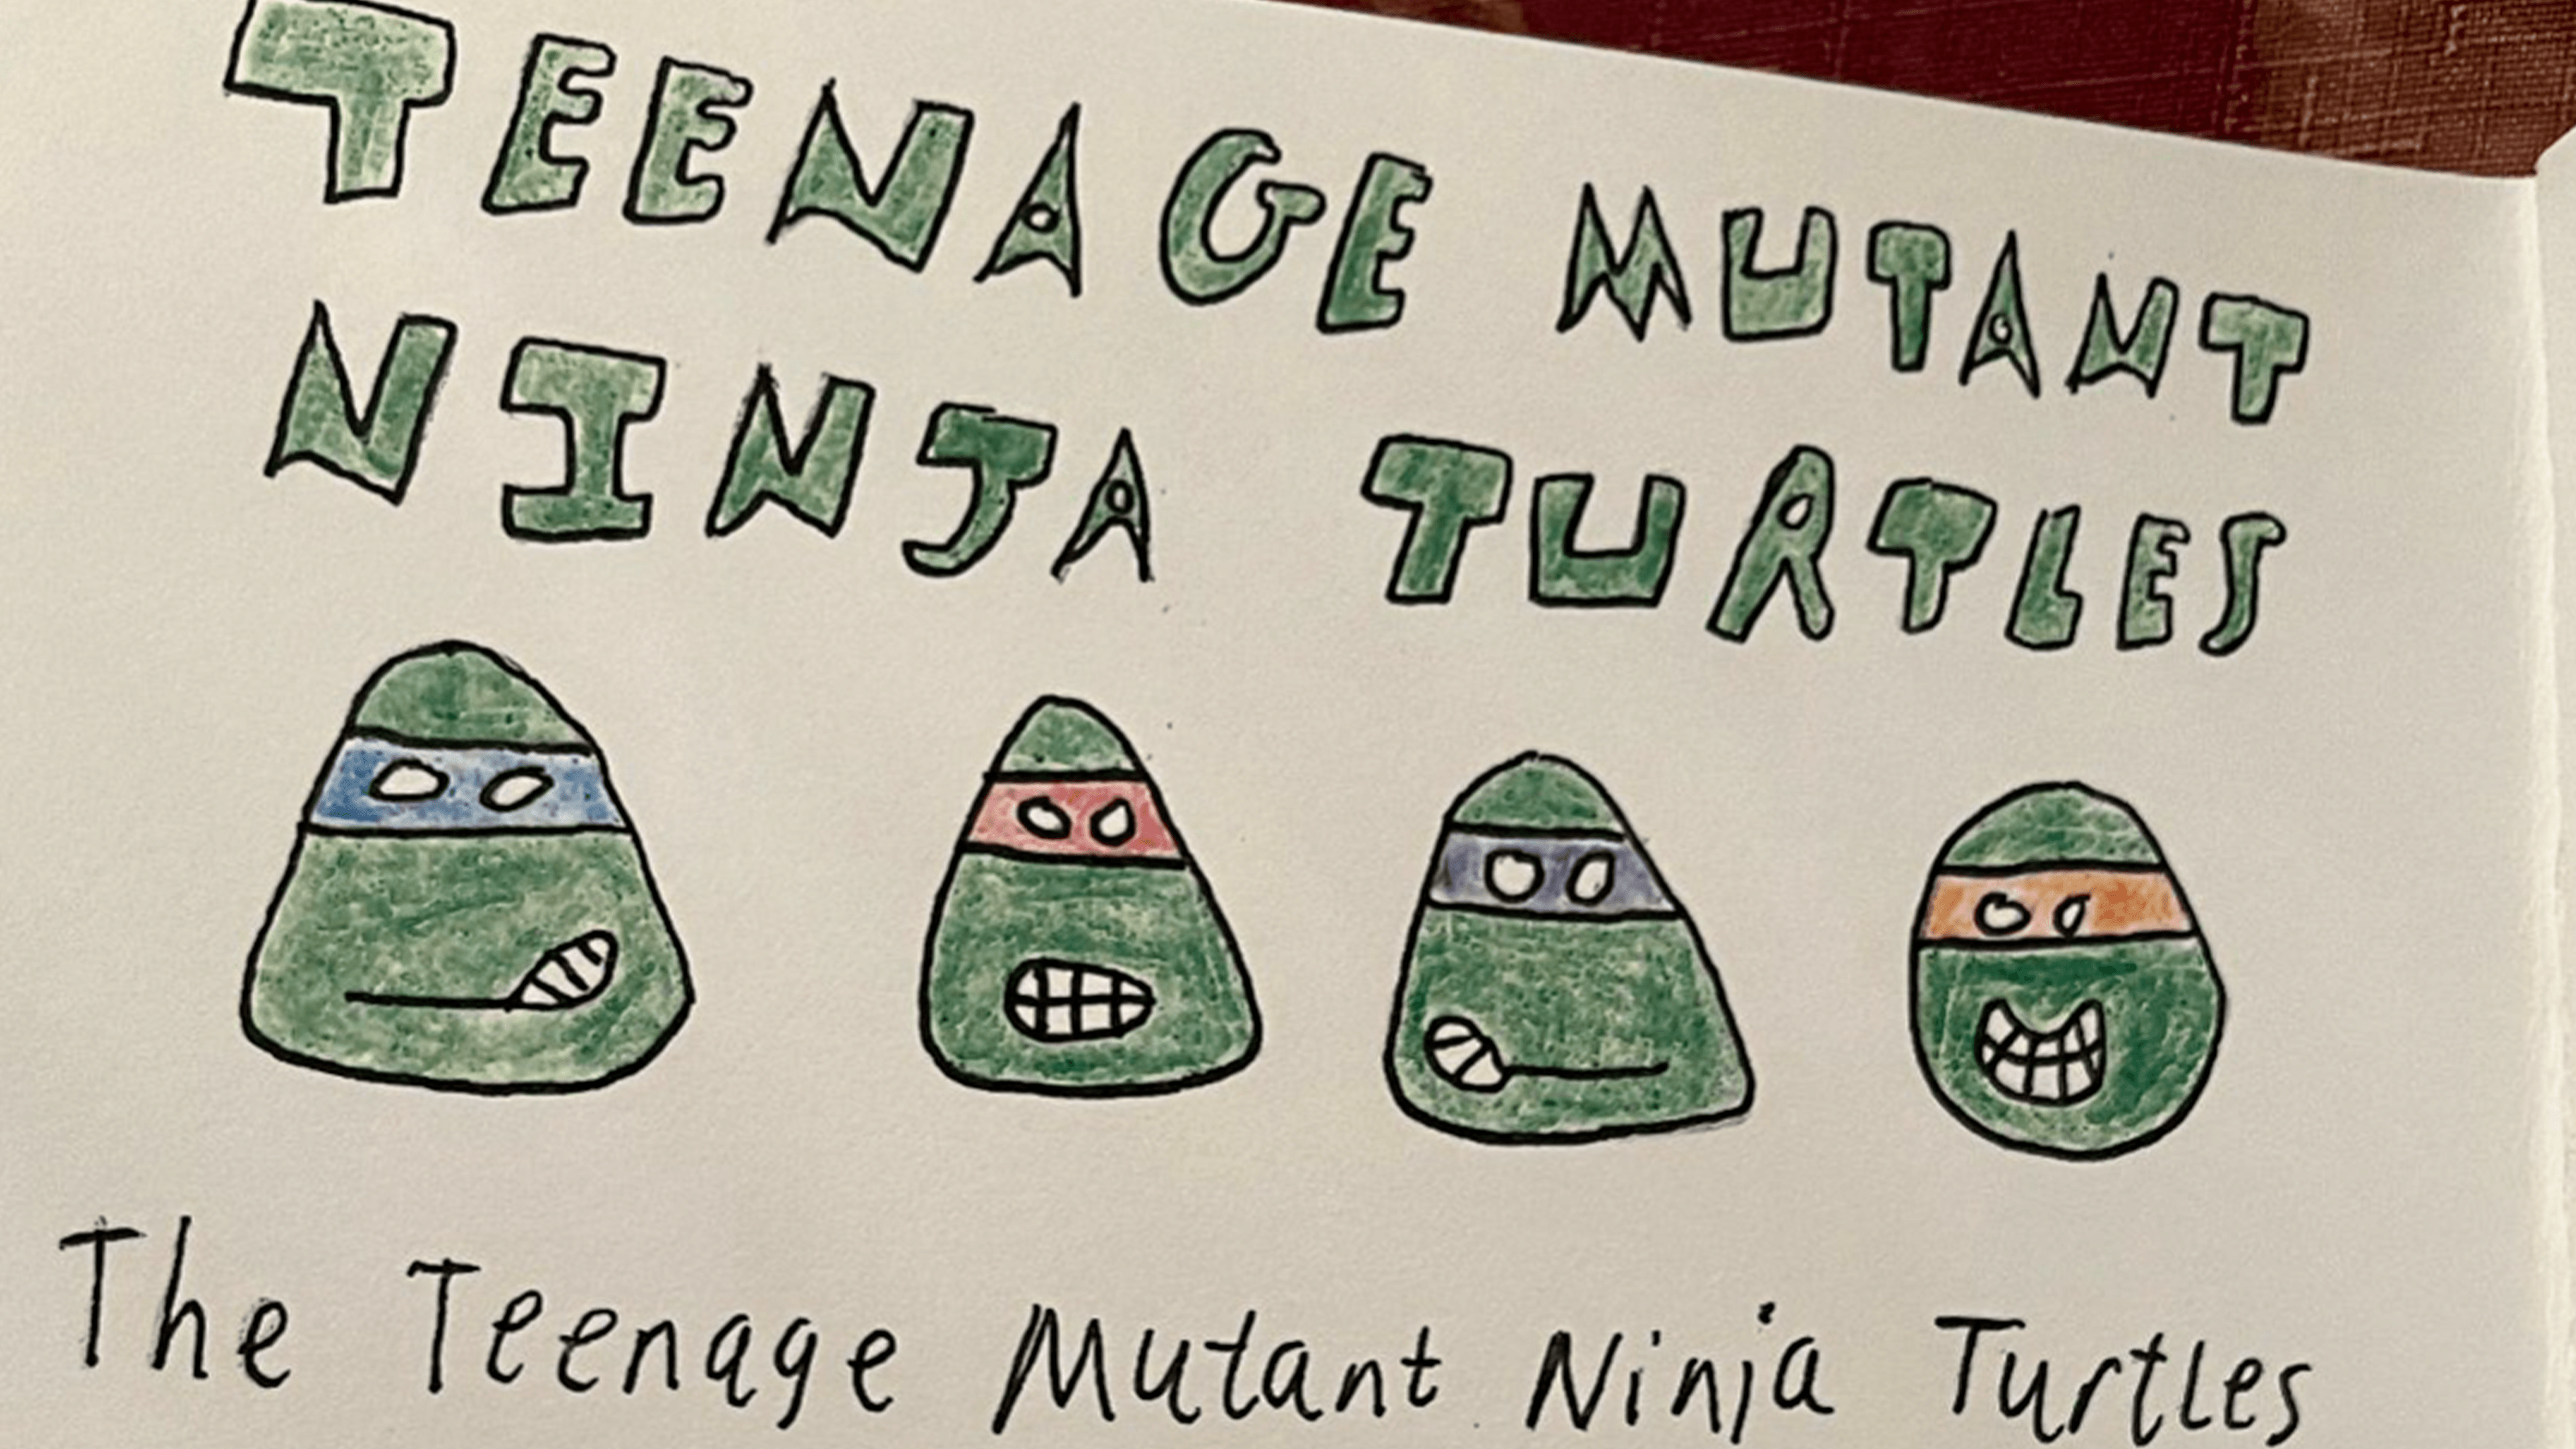 TEENAGE MUTANT
NINJA TURTLES
The Teenage Mutant Ninja Turtles